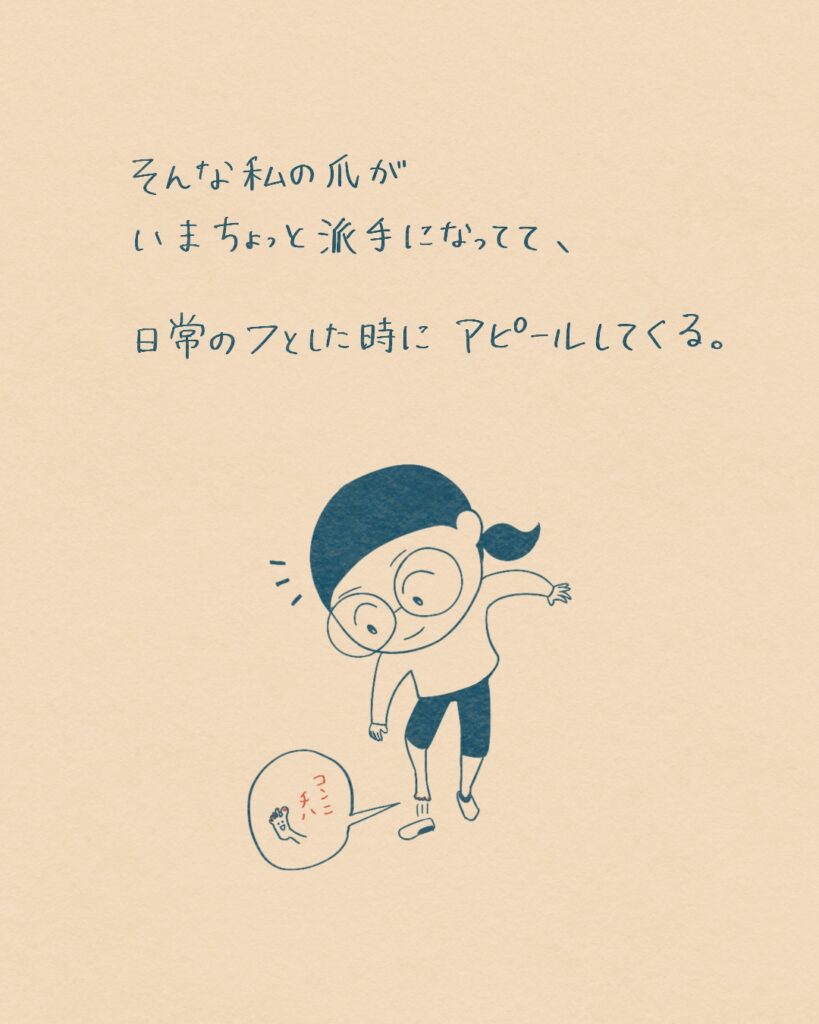 そんな私の爪が
いまちょっと派手になってて、
日常のフとした時に アピールしてくる。
コンニ
チハ